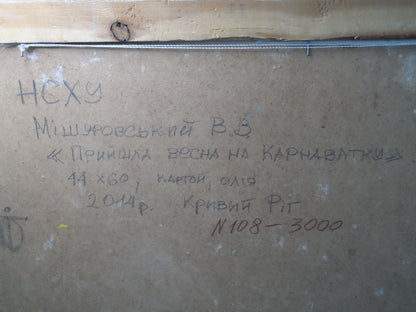 НСХУ
Мішуровський В.В.
«Прийшла весна на Карнаватку»
44х60, картон, олія
2014р. Кривий Ріг
N108-3000